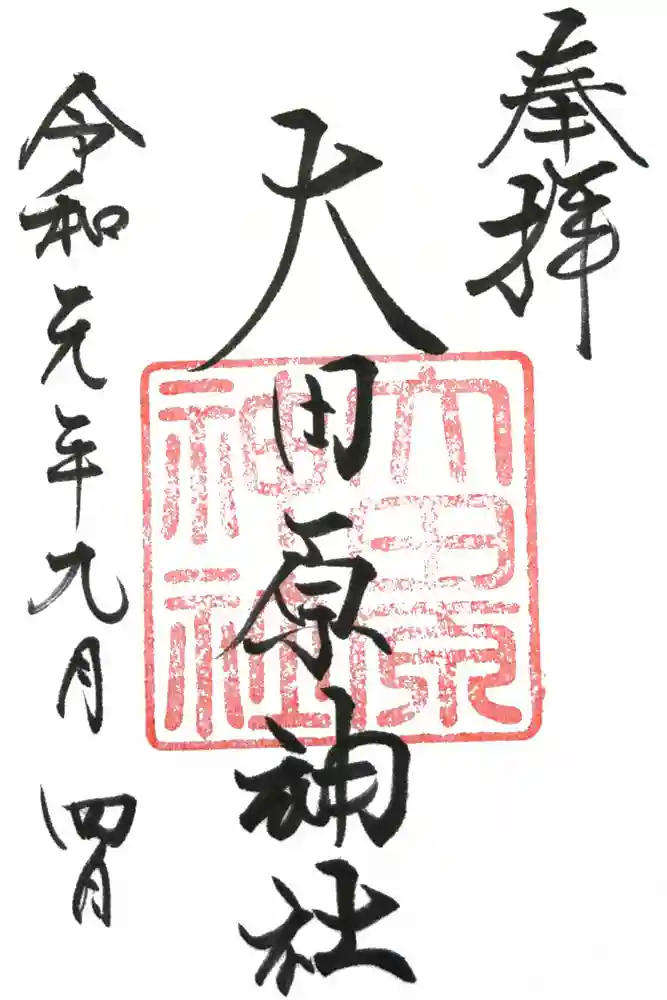 奉拝
大田原神社
大田原神社
令和元年九月四日